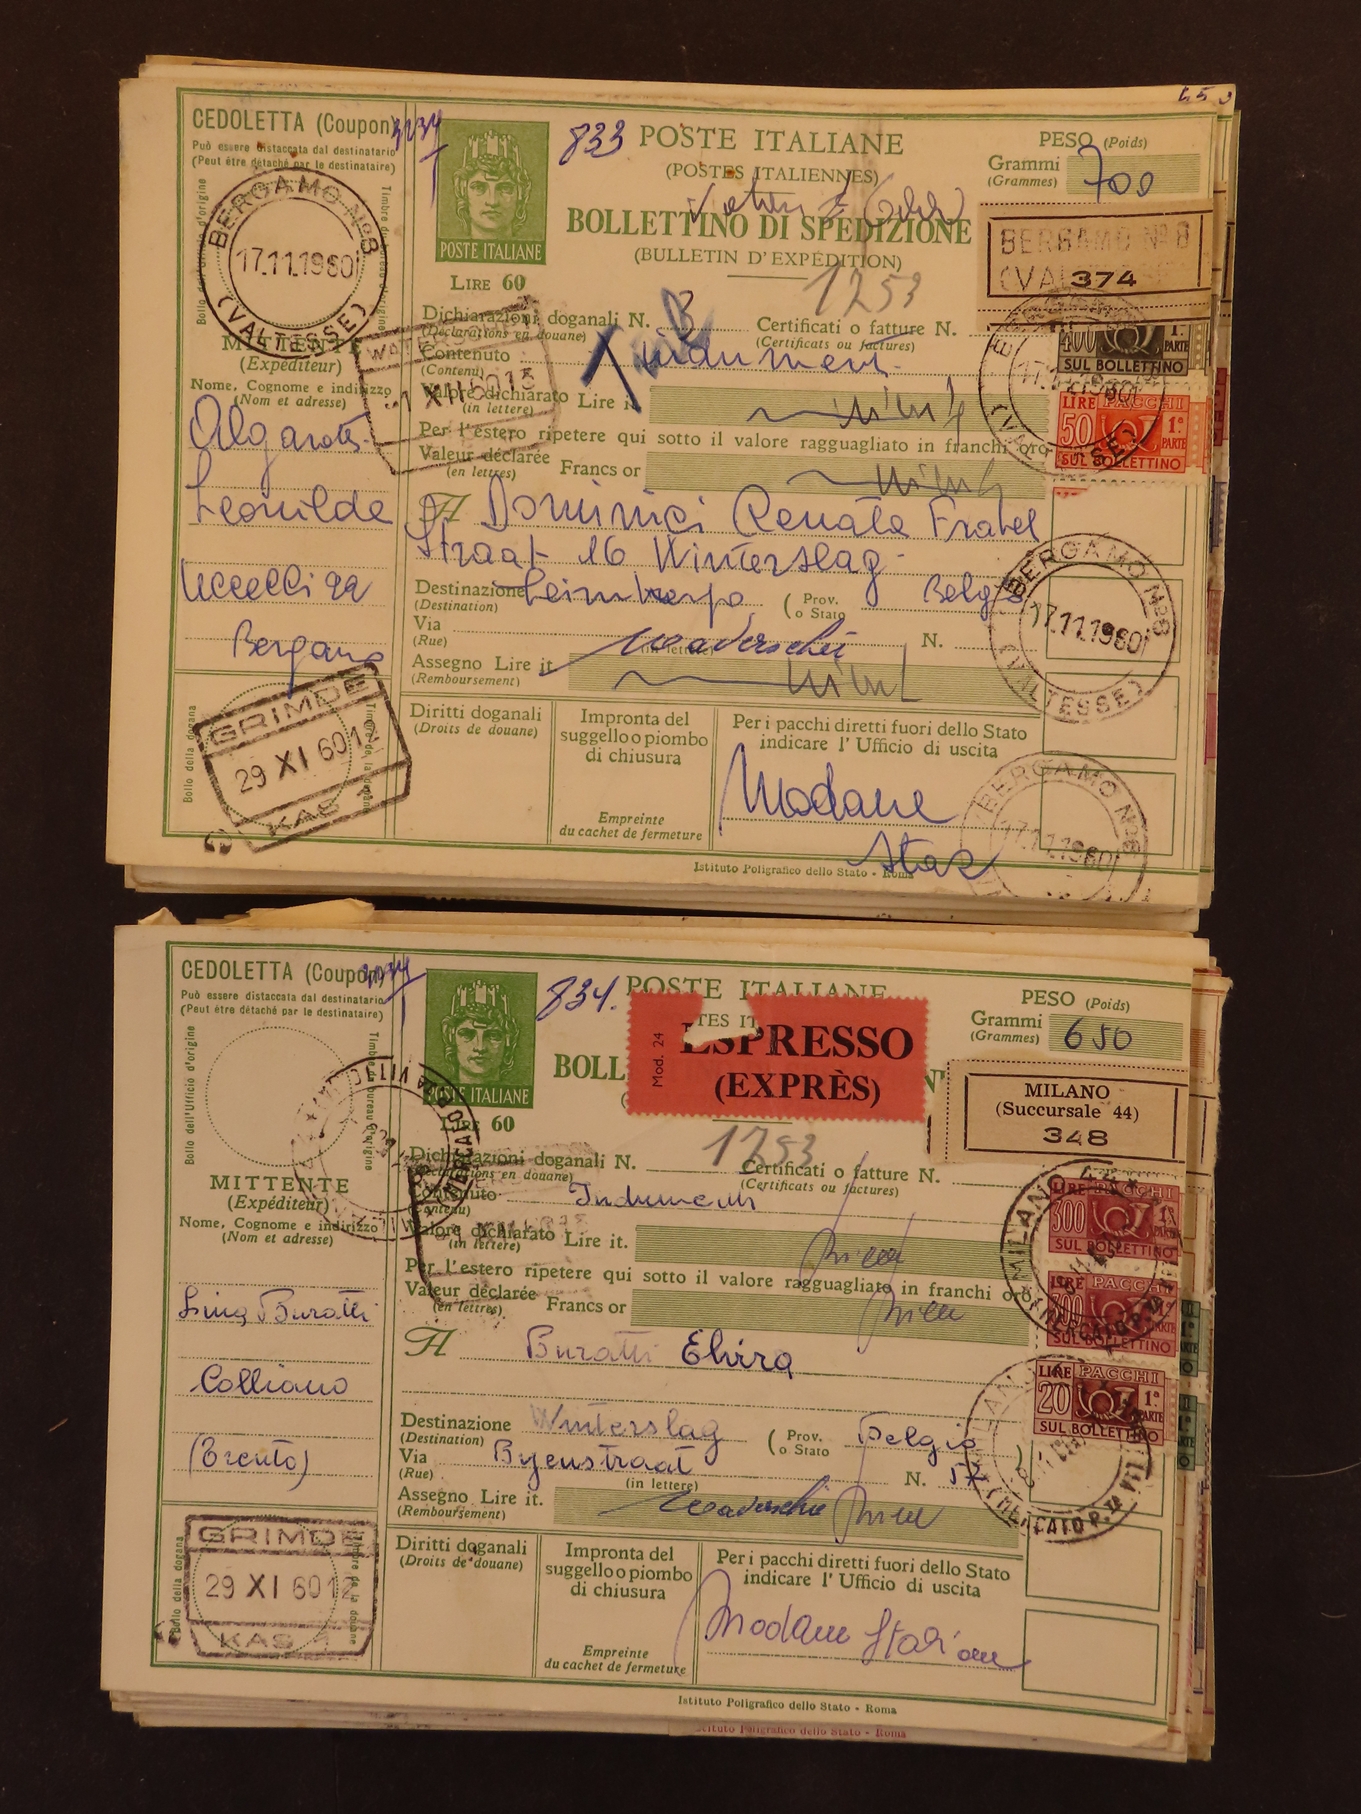 CEDOLETTA (Coupon)
Può essere distaccata dal destinatario
(Peut être détaché par le destinataire)
833
POSTE ITALIANE
(POSTES ITALIENNES)
PESO (Poids)
Grammi
(Grammes)
700
BOLLETTINO DI SPEDIZIONE
(BULLETIN D'EXPÉDITION)
POSTE ITALIANE
LIRE 60
BERGAMO Nº 8
374
1253
Bollo dell'Ufficio d'origine
Timbre du bureau d'origine
BERGAMO Nº 8
17.11.1960
(VALTESSE)
Dichiarazioni doganali N.
(Déclarations en douane)
Certificati o fatture N.
(Certificats ou factures)
Contenuto
(Contenu)
400 1ª PARTE
SUL BOLLETTINO
LIRE PACCHI
50 1ª PARTE
SUL BOLLETTINO
MITTENTE
(Expéditeur)
Nome, Cognome e indirizzo
(Nom et adresse)
Valore dichiarato Lire it.
(in lettere)
Per l'estero ripetere qui sotto il valore ragguagliato in franchi oro
Valeur déclarée
(en lettres)
Francs or
Leonilde
Uccelli 22
Bergamo
A Dominici Renata Fratel
Straat 16 Winterslag
Destinazione
(Destination)
(Prov. o Stato
Belgio
Via
(Rue)
N.
Assegno Lire it.
(Remboursement)
(in lettere)
BERGAMO Nº 8
17.11.1960
(VALTESSE)
Bollo della dogana
Timbre de la douane
GRIMDE
29 XI 60 12
KAS 1
Diritti doganali
(Droits de douane)
Impronta del
suggello o piombo
di chiusura
Empreinte
du cachet de fermeture
Per i pacchi diretti fuori dello Stato
indicare l'Ufficio di uscita
Modane
BERGAMO Nº 8
17.11.1960
Istituto Poligrafico dello Stato - Roma
CEDOLETTA (Coupon)
Può essere distaccata dal destinatario
(Peut être détaché par le destinataire)
834.
POSTE ITALIANE
PESO (Poids)
Grammi
(Grammes)
650
Mod. 24
ESPRESSO
(EXPRÈS)
BOLL
POSTE ITALIANE
LIRE 60
MILANO
(Succursale 44)
348
1253
Bollo dell'Ufficio d'origine
Timbre du bureau d'origine
Dichiarazioni doganali N.
(Déclarations en douane)
Certificati o fatture N.
(Certificats ou factures)
Contenuto
(Contenu)
Indumenti
LIRE PACCHI
300 1ª
SUL BOLLETTINO
LIRE PACCHI
300
SUL BOLLETTINO
LIRE PACCHI
20 1ª PARTE
SUL BOLLETTINO
MITTENTE
(Expéditeur)
Nome, Cognome e indirizzo
(Nom et adresse)
Valore dichiarato Lire it.
(in lettere)
Per l'estero ripetere qui sotto il valore ragguagliato in franchi oro
Valeur déclarée
(en lettres)
Francs or
Buratti
(Trento)
A Buratti Elvira
Destinazione
(Destination)
Winterslag
(Prov. o Stato
Belgio
)
Via
(Rue)
Byenstraat
N. 57
Assegno Lire it.
(Remboursement)
(in lettere)
Bollo della dogana
Timbre de la douane
GRIMDE
29 XI 60 12
KAS 1
Diritti doganali
(Droits de douane)
Impronta del
suggello o piombo
di chiusura
Empreinte
du cachet de fermeture
Per i pacchi diretti fuori dello Stato
indicare l'Ufficio di uscita
Modane
Istituto Poligrafico dello Stato - Roma
Istituto Poligrafico dello Stato - Roma